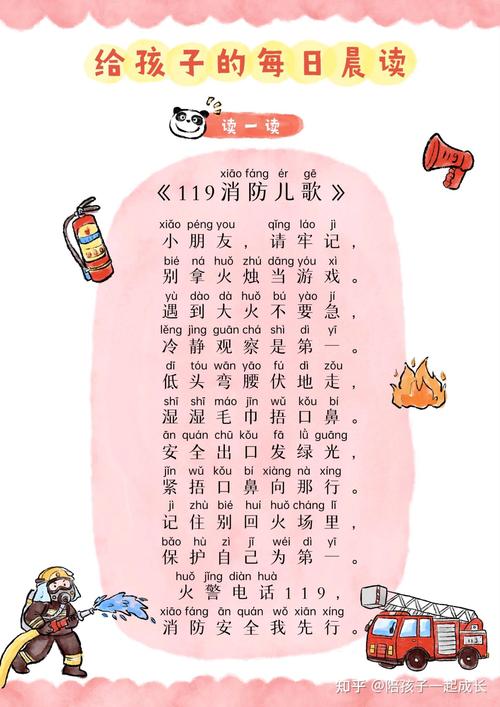 给孩子的每日晨读
读一读
xiāo fáng ér gē
《119消防儿歌》
xiǎo péng you qǐng láo jì
小朋友，请牢记，
bié ná huǒ zhú dāng yóu xì
别拿火烛当游戏。
yù dào dà huǒ bú yào jí
遇到大火不要急，
lěng jìng guān chá shì dì yī
冷静观察是第一。
dī tóu wān yāo fú dì zǒu
低头弯腰伏地走，
shī shī máo jīn wǔ kǒu bí
湿湿毛巾捂口鼻。
ān quán chū kǒu fā lǜ guāng
安全出口发绿光，
jǐn wǔ kǒu bí xiàng nà xíng
紧捂口鼻向那行。
jì zhù bié huí huǒ chǎng lǐ
记住别回火场里，
bǎo hù zì jǐ wéi dì yī
保护自己为第一。
huǒ jǐng diàn huà
火警电话119，
xiāo fáng ān quán wǒ xiān xíng
消防安全我先行。
知乎 @陪孩子一起成长